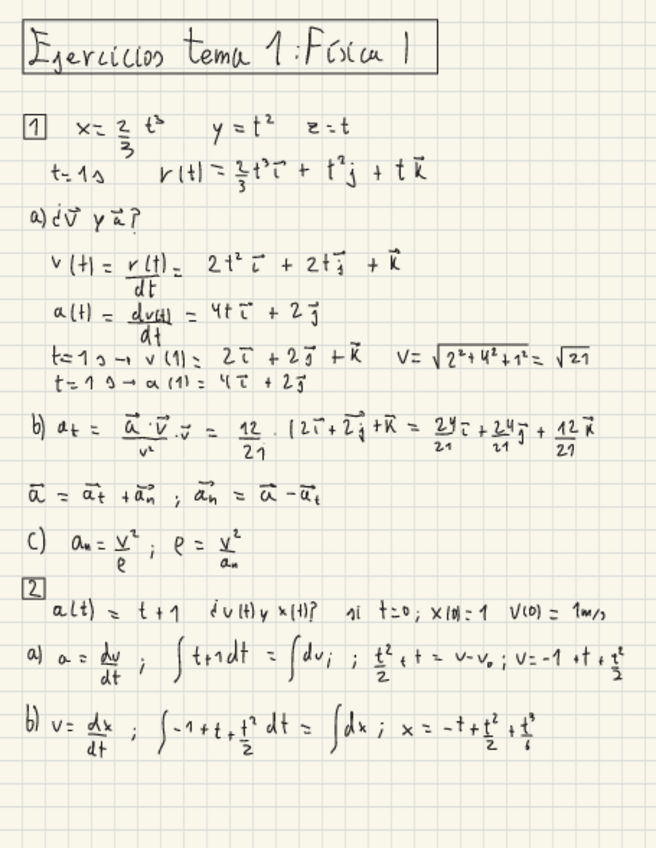 Ejercicios tema 1: Física 1
1 x = 2/3 t³ y = t² z = t
t = 1 s r(t) = 2/3 t³ i⃗ + t² j⃗ + t k⃗
a) ¿v⃗ y a⃗?
v(t) = r(t)/dt = 2t² i⃗ + 2t j⃗ + k⃗
a(t) = dv(t)/dt = 4t i⃗ + 2 j⃗
t = 1 s → v(1) = 2 i⃗ + 2 j⃗ + k⃗ v = √(2² + 4² + 1²) = √21
t = 1 s → a(1) = 4 i⃗ + 2 j⃗
b) at = (a⃗ · v⃗)/v² · v⃗ = 12/21 · (2 i⃗ + 2 j⃗ + k⃗ = 24/21 i⃗ + 24/21 j⃗ + 12/21 k⃗
a⃗ = a⃗t + a⃗n ; a⃗n = a⃗ - a⃗t
c) an = v²/ρ ; ρ = v²/an
2
a(t) = t + 1 ¿v(t) y x(t)? si t = 0 ; x(0) = 1 v(0) = 1 m/s
a) a = dv/dt ; ∫ t + 1 dt = ∫ dv ; ; t²/2 + t = v - v₀ ; v = -1 + t + t²/2
b) v = dx/dt ; ∫ -1 + t + t²/2 dt = ∫ dx ; x = -t + t²/2 + t³/6